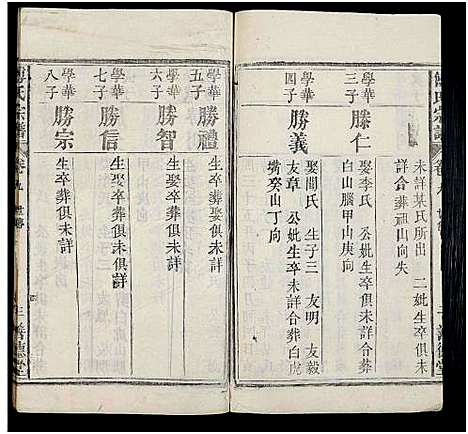 未詳某氏所出　二妣生卒俱未
詳合葬祖山向失
學華
三子
勝仁
娶李氏　公妣生卒未詳合葬
白山腦甲山庚向
學華
四子
勝義
娶閻氏　生子三　友明　友毅
友章　公妣生卒未詳合葬白虎
嘴癸山丁向
善德堂
學華
五子
勝禮
生卒葬俱未詳
學華
六子
勝智
生娶卒葬俱未詳
學華
七子
勝信
生娶卒葬未俱詳
學華
八子
勝宗
生卒葬俱未詳
氏宗譜
卷九
世傳
三
善德堂